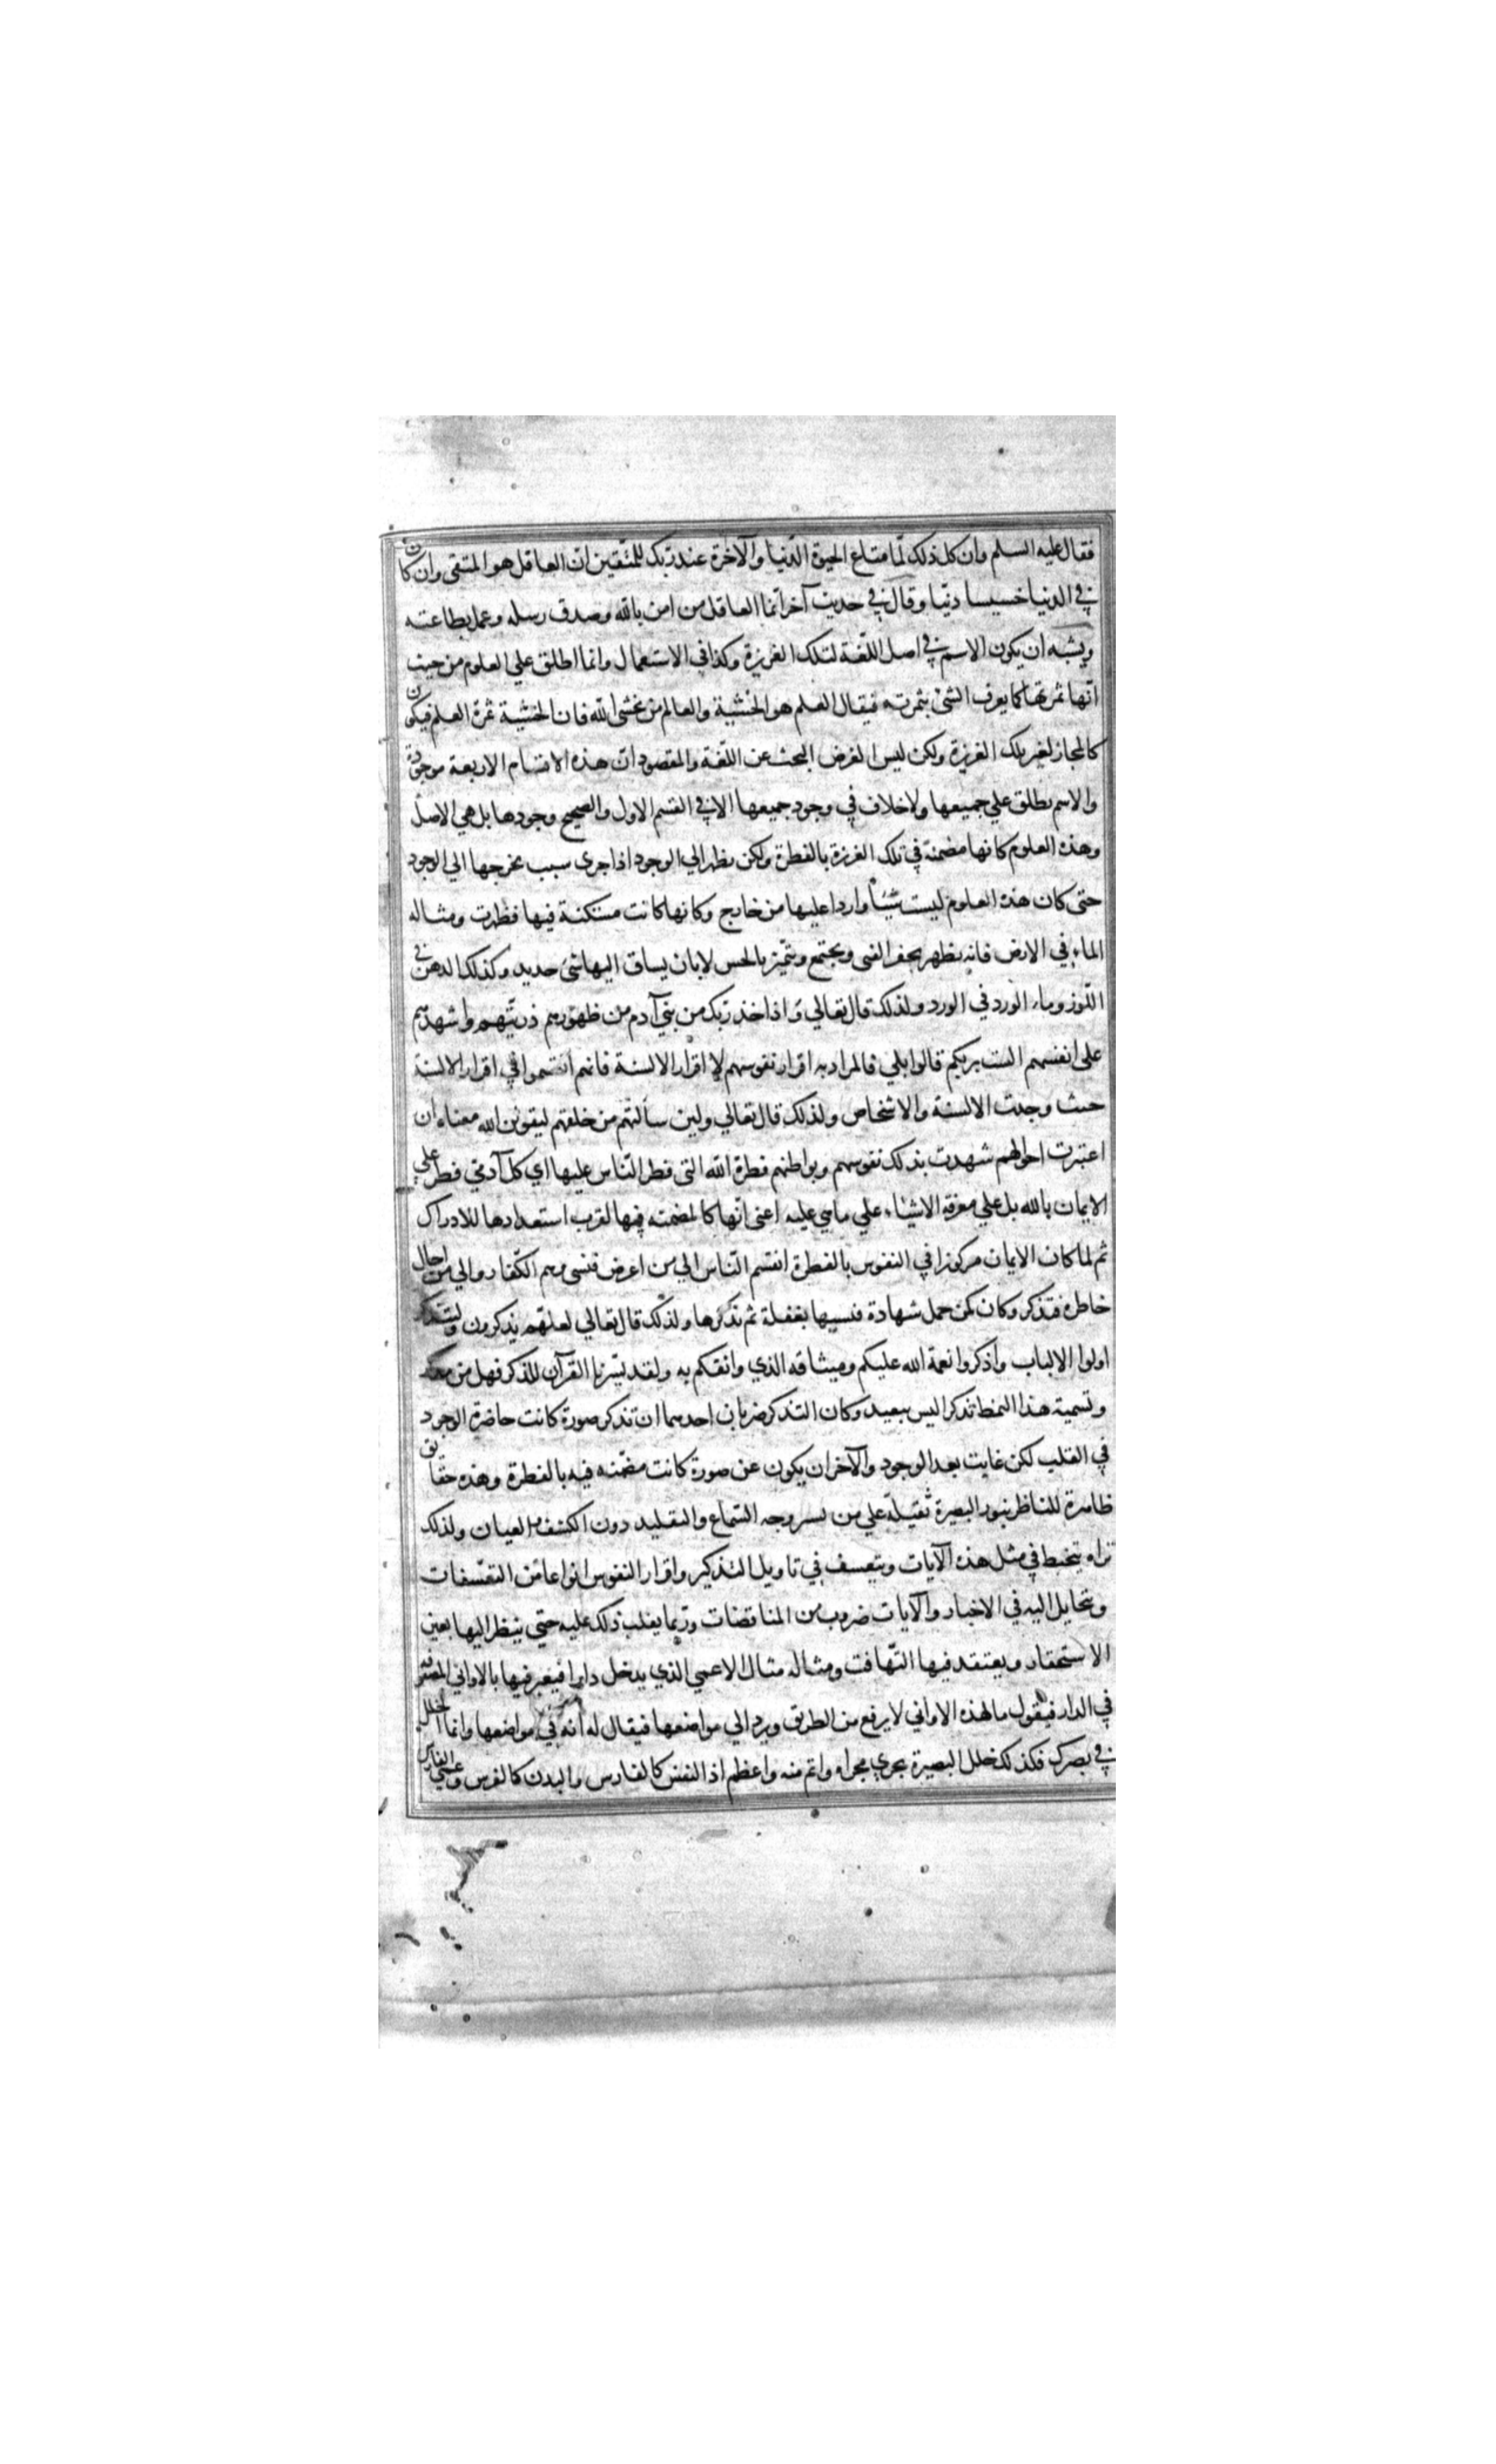 فقال عليه السلم وان كل ذلك لمّا متاع الحيوة الدنيا والآخرة عند ربك للمتّقين انّ العاقل هو المتقى وان كان
في الدنيا خسيسا دنيّا وقال في حديث آخر انّما العاقل من امن بالله وصدق رسله وعمل بطاعته
ويشبه ان يكون الاسم في اصل اللّغة لتلك الغريزة وكذا في الاستعمال وانما اطلق علي العلوم من حيث
انّها ثمرتها كما يعرف الشئ بثمرته فيقال العلم هو الخشية والعالم من يخشى الله فان الخشية ثمرة العلم فيكون
كالمجاز لغير تلك الغريزة ولكن ليس الغرض البحث عن اللّغة والمقصود انّ هذه الاقسام الاربعة موجودة
والاسم يطلق علي جميعها ولا خلاف في وجود جميعها الا في القسم الاول والصحيح وجودها بل هي الاصل
وهذه العلوم كانها مضمنة في تلك الغريزة بالفطرة ولكن يظهر الي الوجود اذا جرى سبب يخرجها الي الوجود
حتى كان هذه العلوم ليست شيئا واردا عليها من خارج وكانها كانت مستكنة فيها فظهرت ومثاله
الماء في الارض فانه يظهر بحفر القنى ويجتمع ويتميّز بالحس لا بان يساق اليها شئ جديد وكذلك الدهن في
اللّوز وماء الورد في الورد ولذلك قال تعالي واذ اخذ ربك من بني آدم من ظهورهم ذريّتهم واشهدهم
على انفسهم الست بربكم قالوا بلي فالمراد به اقرار نفوسهم لا اقرار الالسنة فانهم انقسموا في اقرار الالسنة
حيث وجدت الالسنة والاشخاص ولذلك قال تعالي ولين سألتهم من خلقهم ليقولن الله معناه ان
اعتبرت احوالهم شهدت بذلك نفوسهم وبواطنهم فطرة الله التى فطر النّاس عليها اي كل آدمي فطر علي
الايمان بالله بل علي معرفة الاشياء علي ما هي عليه اعنى انّها كالمضمنة فيها لقرب استعدادها للادراك
ثم لما كان الايمان مركوزا في النفوس بالفطرة انقسم النّاس الي من اعرض فنسى وهم الكفار والي من اجال
خاطره فتذكر وكان كمن حمل شهادة فنسيها بغفلة ثم تذكرها ولذلك قال تعالي لعلّهم يتذكرون وليتذكر
اولوا الالباب واذكروا نعمة الله عليكم وميثاقه الذي واثقكم به ولقد يسّرنا القرآن للذكر فهل من مدكر
وتسمية هذا النمط تذكرا ليس ببعيد وكان التذكر ضربان احدهما ان تذكر صورة كانت حاضرة الوجود
في القلب لكن غابت بعد الوجود والآخر ان يكون عن صورة كانت مضمّنة فيه بالفطرة وهذه حقايق
ظاهرة للناظر بنور البصيرة ثقيلة علي من يسروجه السّماع والتقليد دون الكشف والعيان ولذلك
تراه يتخبط في مثل هذه الآيات ويتعسف في تاويل التذكير واقرار النفوس انواعا من التعسّفات
ويتخايل اليه في الاخبار والآيات ضروب من المناقضات وربّما يغلب ذلك عليه حتي ينظر اليها بعين
الاستحقار ويعتقد فيها التّهافت ومثاله مثال الاعمي الذي يدخل دارا فيعثر فيها بالاواني المصفوفة
في الدار فيقول ما لهذه الاواني لا يرفع من الطريق ويرد الي مواضعها فيقال له انه في مواضعها وانما الخلل
في بصرك فكذلك خلل البصيرة يجري مجراه واتم منه واعظم اذ النفس كالفارس والبدن كالفرس وعمي الفارس